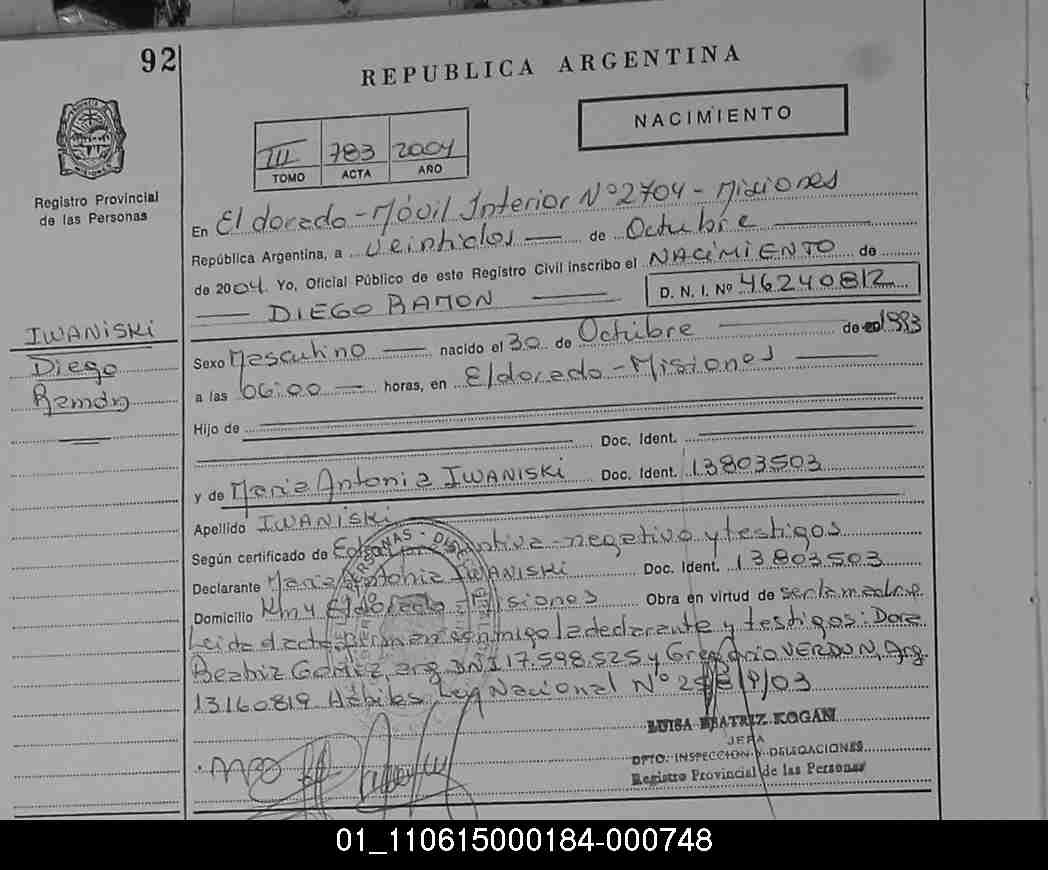 92
REPUBLICA ARGENTINA
NACIMIENTO
III 783 2004
TOMO ACTA AÑO
Registro Provincial
de las Personas
En Eldorado - Móvil Interior Nº 2704 - Misiones
República Argentina, a Veintidos — de Octubre —
de 2004. Yo, Oficial Público de este Registro Civil inscribo el NACIMIENTO de
— DIEGO RAMON — D. N. I. Nº 46240812
IWANISKI
Diego
Ramón
Sexo Masculino — nacido el 30 de Octubre — de 1993
a las 06:00 — horas, en Eldorado - Misiones —
Hijo de
Doc. Ident.
y de Maria Antonia IWANISKI Doc. Ident. 13803503
Apellido IWANISKI
Según certificado de negativo y testigos
Declarante Maria Antonia IWANISKI Doc. Ident. 13803503
Domicilio Km 4 Eldorado - Misiones Obra en virtud de ser la madre.
Leida el acta firman conmigo la declarante y testigos: Dora
Beatriz Gomez, arg. DNI 17.598.525 y Gregorio VERDUN, Arg.
13160819 Hábiles, Ley Nacional Nº
LUISA BEATRIZ KOGAN
JEFA
DPTO. INSPECCION Y DELEGACIONES
Registro Provincial de las Personas
01_110615000184-000748